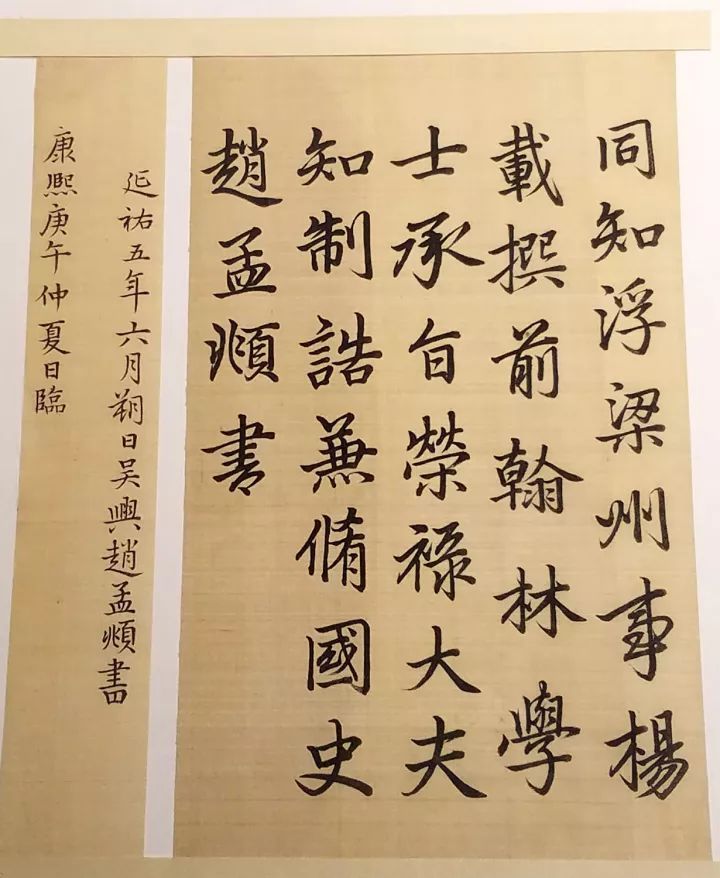 同知浮梁州事楊
載撰前翰林學
士承旨榮祿大夫
知制誥兼脩國史
趙孟頫書
延祐五年六月朔日吴興趙孟頫書
康熙庚午仲夏日臨